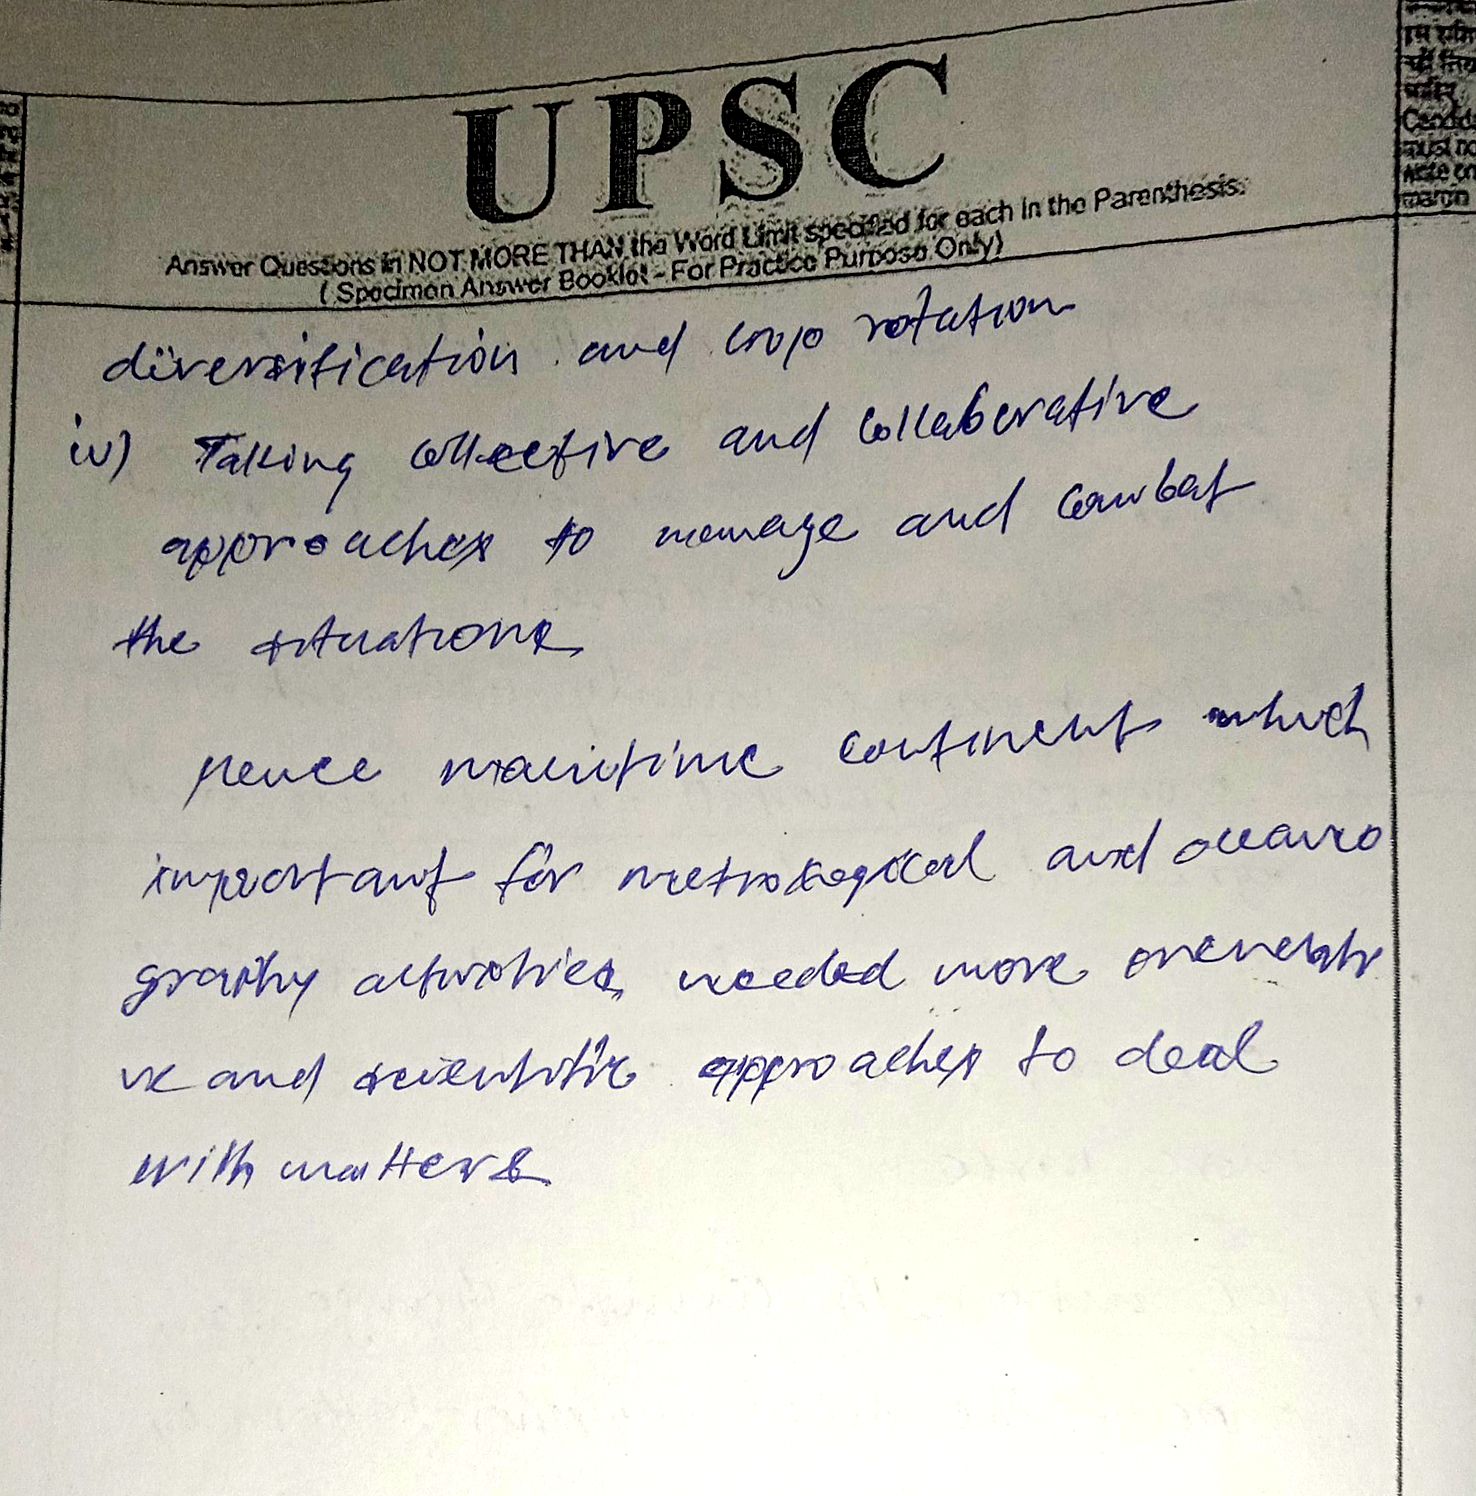 UPSC
Answer Questions in NOT MORE THAN the Word Limit specified for each in the Parenthesis.
( Specimen Answer Booklet - For Practice Purpose Only)
Candid
must no
write on
margin
diversification and crop rotation
iv) Taking collective and collaborative
approaches to manage and combat
the situations
Hence maritime continent which
important for metrological and oceano
graphy activities needed more
and scientific approaches to deal
with matters